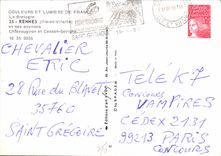 COULEURS ET LUMIERE DE FRANCE
La Bretagne
35 - RENNES (Ille-et-Vilaine)
et ses environs
Châteaugiron et Cesson-Sévigné
CHEVALIER
ERIC
28 Rue du Blavet
35760
SAINT GREGOIRE
TELE K7
CONCOURS
VAMPIRES
CEDEX 2131
99213 PARIS
CONCOURS